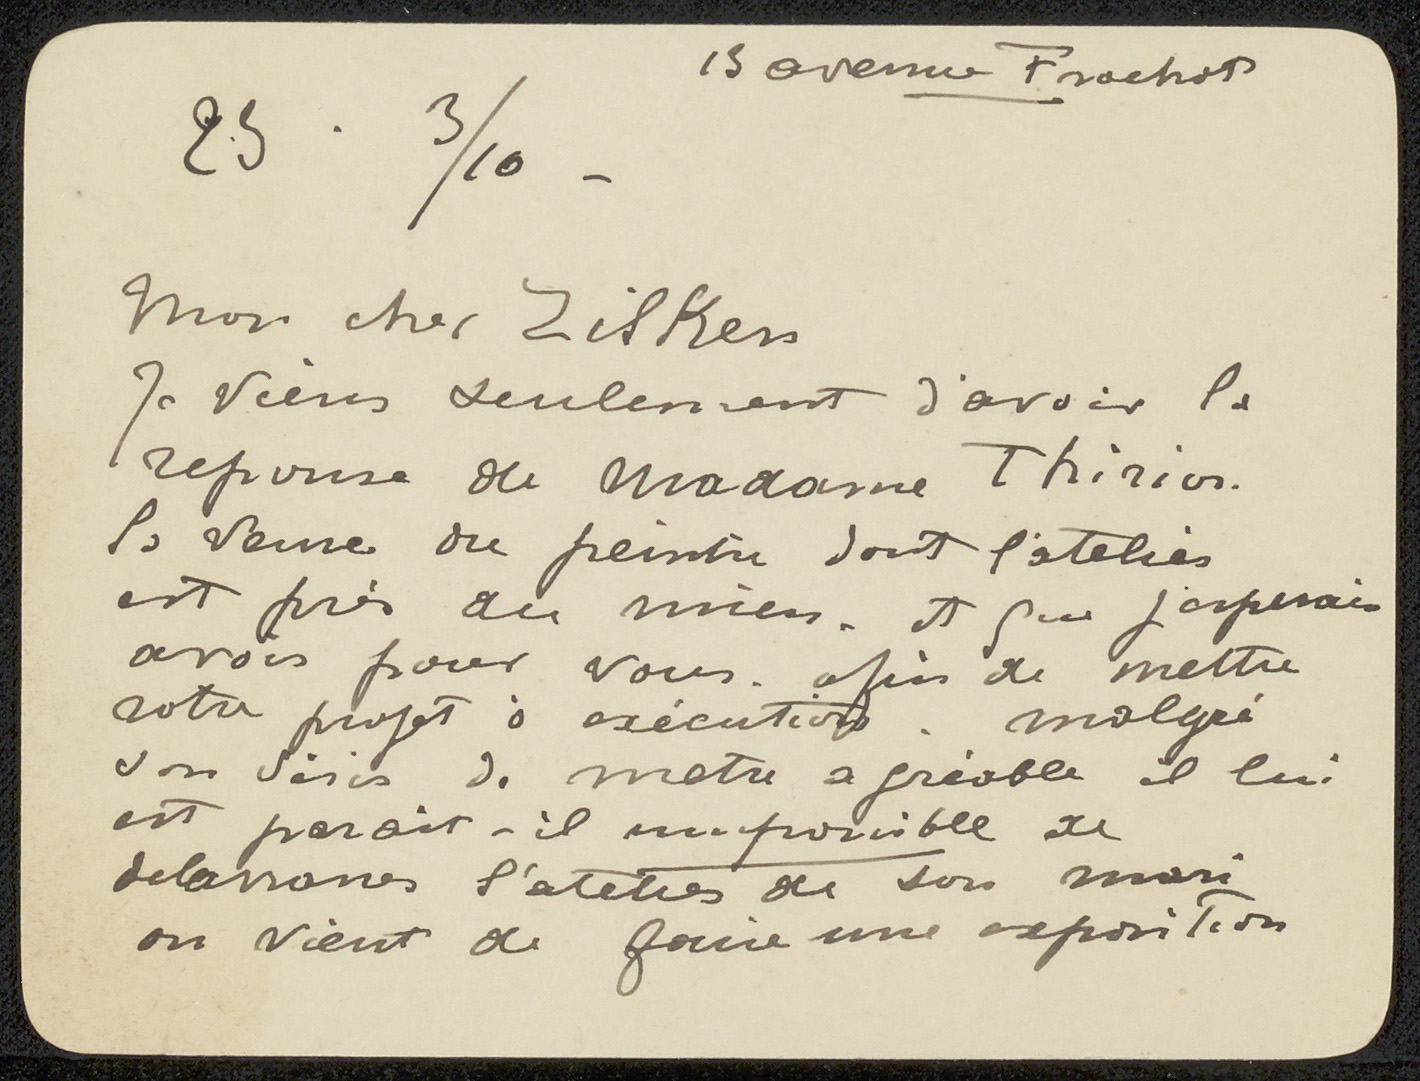 15 avenue Frochot
25 . 3/10 -
Mon cher Zilken
Je viens seulement d'avoir la
reponse de Madame Thirion.
la veuve du peintre dont l'atelier
est près du mien. et que j'esperais
avoir pour vous. afin de mettre
votre projet à exécution. malgré
son désir de m'etre agréable il lui
est parait-il impossible de
debarrasser l'atelier de son mari
on vient de faire une exposition